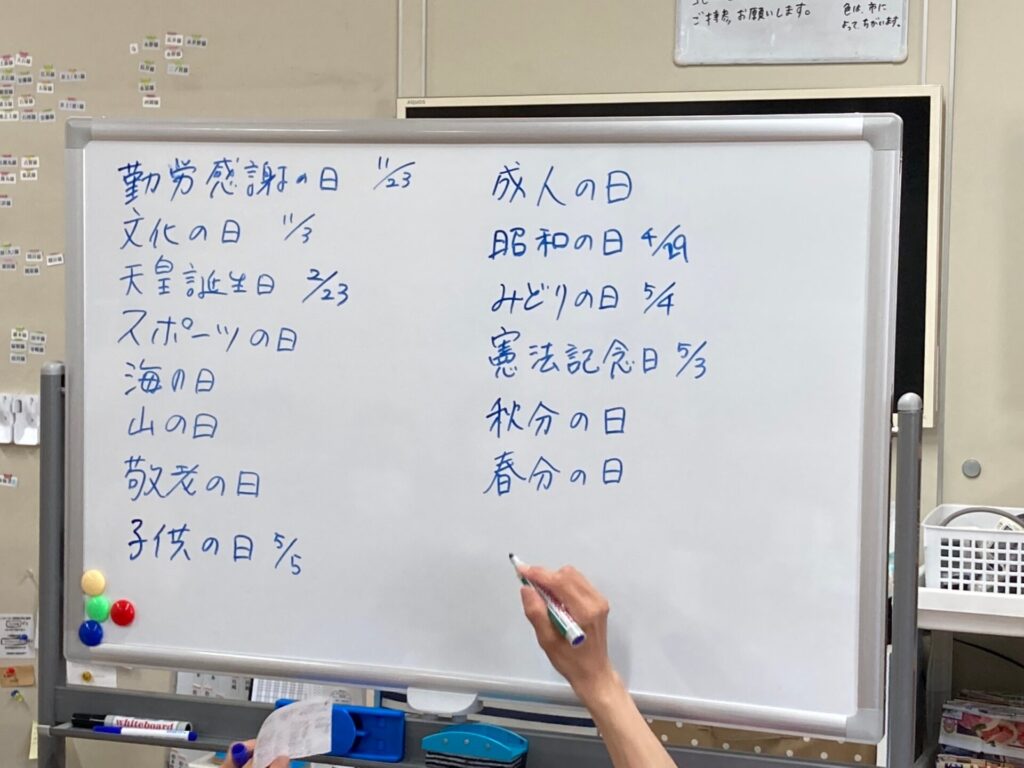 ご持参お願いします。
色は、市に
よってちがいます。
AQUOS
勤労感謝の日 11/23
文化の日 11/3
天皇誕生日 2/23
スポーツの日
海の日
山の日
敬老の日
子供の日 5/5
成人の日
昭和の日 4/29
みどりの日 5/4
憲法記念日 5/3
秋分の日
春分の日
whiteboard